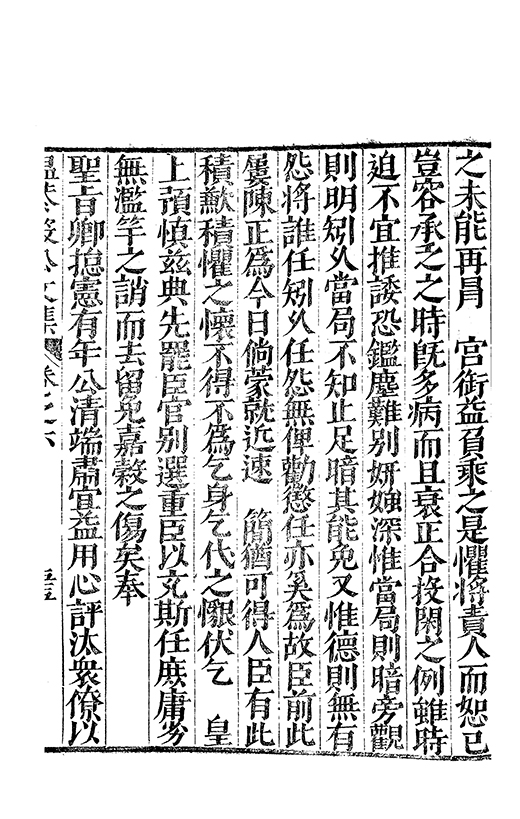 之未能再冐　宮銜益負乘之是懼將責人而恕已
豈容承乏之時旣多病而且衰正合投閑之例雖時
迫不宜推諉恐鑑塵難别姸媸深惟當局則暗旁觀
則明矧久當局不知止足暗其能免又惟德則無有
怨將誰任矧久任怨無俾勸懲任亦奚爲故臣前此
屢陳正爲今日倘蒙就近速　簡猶可得人臣有此
積歉積懼之懷不得不爲乞身乞代之懇伏乞　皇
上預愼兹典先罷臣官别選重臣以充斯任庶庸劣
無濫竽之誚而去留免嘉穀之傷矣奉
聖㫖卿揔憲有年公清端肅宜益用心評汰衆僚以
文集　卷之六